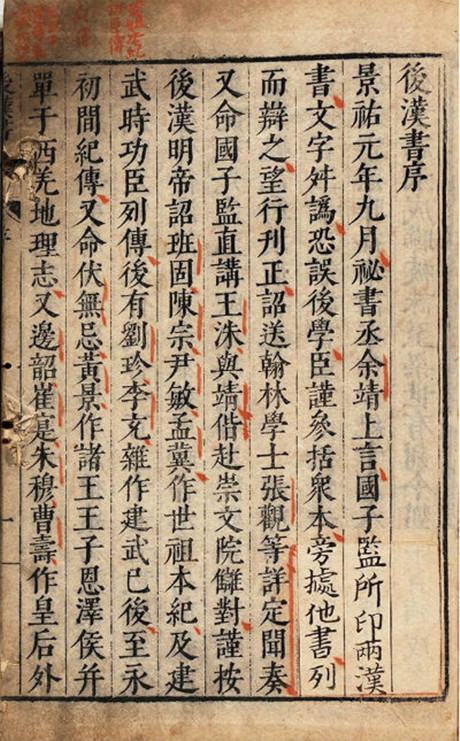 後漢書序
景祐元年九月祕書丞余靖上言國子監所印兩漢
書文字舛譌恐誤後學臣謹叅括衆本旁㨿他書列
而辯之望行刊正詔送翰林學士張觀等詳定聞奏
又命國子監直講王洙與靖偕赴崇文院讎對謹按
後漢明帝詔班固陳宗尹敏孟冀作世祖本紀及建
武時功臣列傳後有劉珍李充雜作建武已後至永
初間紀傳又命伏無忌黃景作諸王王子恩澤侯并
單于西羌地理志又邊韶崔寔朱穆曹壽作皇后外